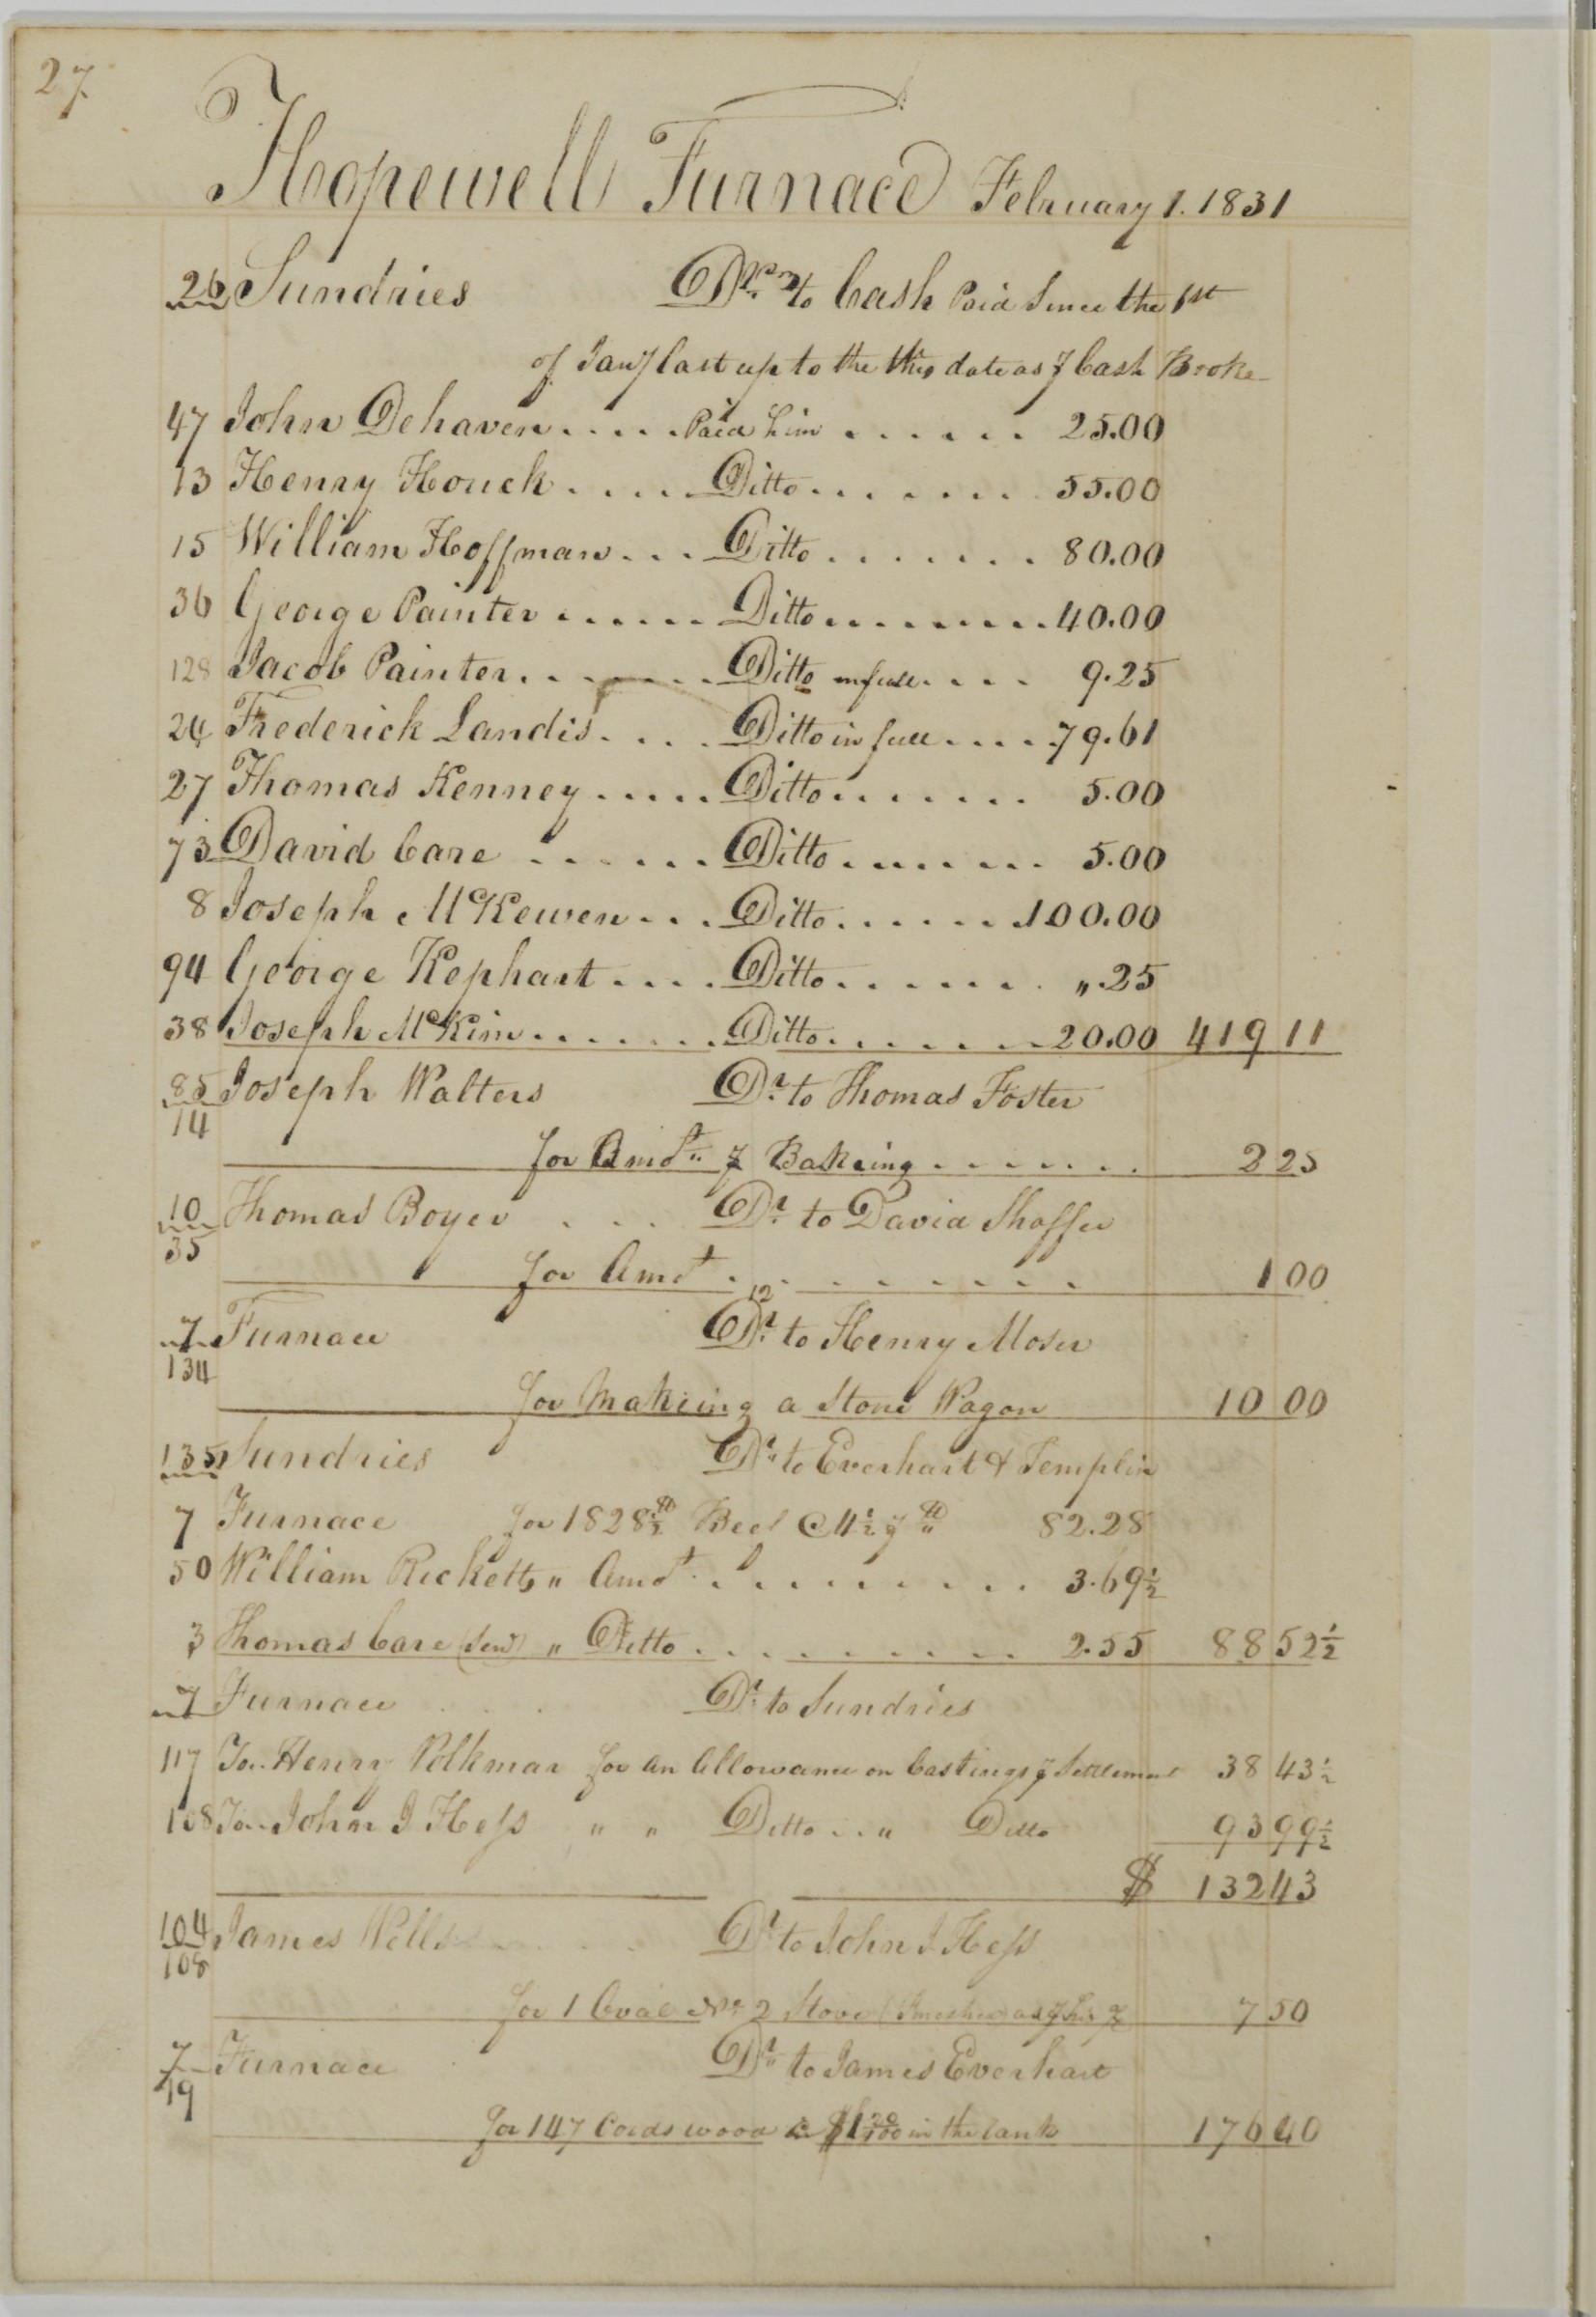 27
Hopewell Furnace February 1. 1831
26 Sundries Drs to Cash Paid Since the 1st
of Jany last up to the this date as ⅌ Cash Booke
47 John Dehaven..... Paid him ...... 25.00
13 Henry Houck..... Ditto....... 55.00
15 William Hoffman... Ditto....... 80.00
36 George Painter...... Ditto........ 40.00
128 Jacob Painter...... Ditto in full.... 9.25
24 Frederick Landis.... Ditto in full.... 79.61
27 Thomas Kenney..... Ditto....... 5.00
73 David Care ...... Ditto....... 5.00
8 Joseph McKewen... Ditto...... 100.00
94 George Kephart.... Ditto....... „.25
38 Joseph McKim....... Ditto....... 20.00 419 11
85 Joseph Walters Dr. to Thomas Foster
14
for Amot. ⅌ Bakeing....... 2 25
10 Thomas Boyer ... Dr. to David Shaffer
35
for Amot. ........ 1 00
12
7 Furnace Dr. to Henry Moser
134
for Makeing a Stone Wagon 10 00
135 Sundries Dr. to Everhart & Templin
7 Furnace for 1828½ ℔ Beef @ 4½ ⅌ ℔ 82.28
50 William Ricketts „ Amot. ........ 3.69½
3 Thomas Care (Senr) „ Ditto......... 2.55 88 52½
7 Furnace Dr. to Sundries
117 To.. Henry Volkmar for an Allowance on Castings ⅌ Settlement 38 43½
108 To.. John J Hess „ „ Ditto.. „ Ditto 93 99½
$ 132 43
104 James Wells Dr. to John J Hess
108
for 1 Oval No. 2 Stove as ⅌ his 7 50
7 Furnace Dr. to James Everhart
19
for 147 Cords wood @ $1 20/100 in the rank 176 40